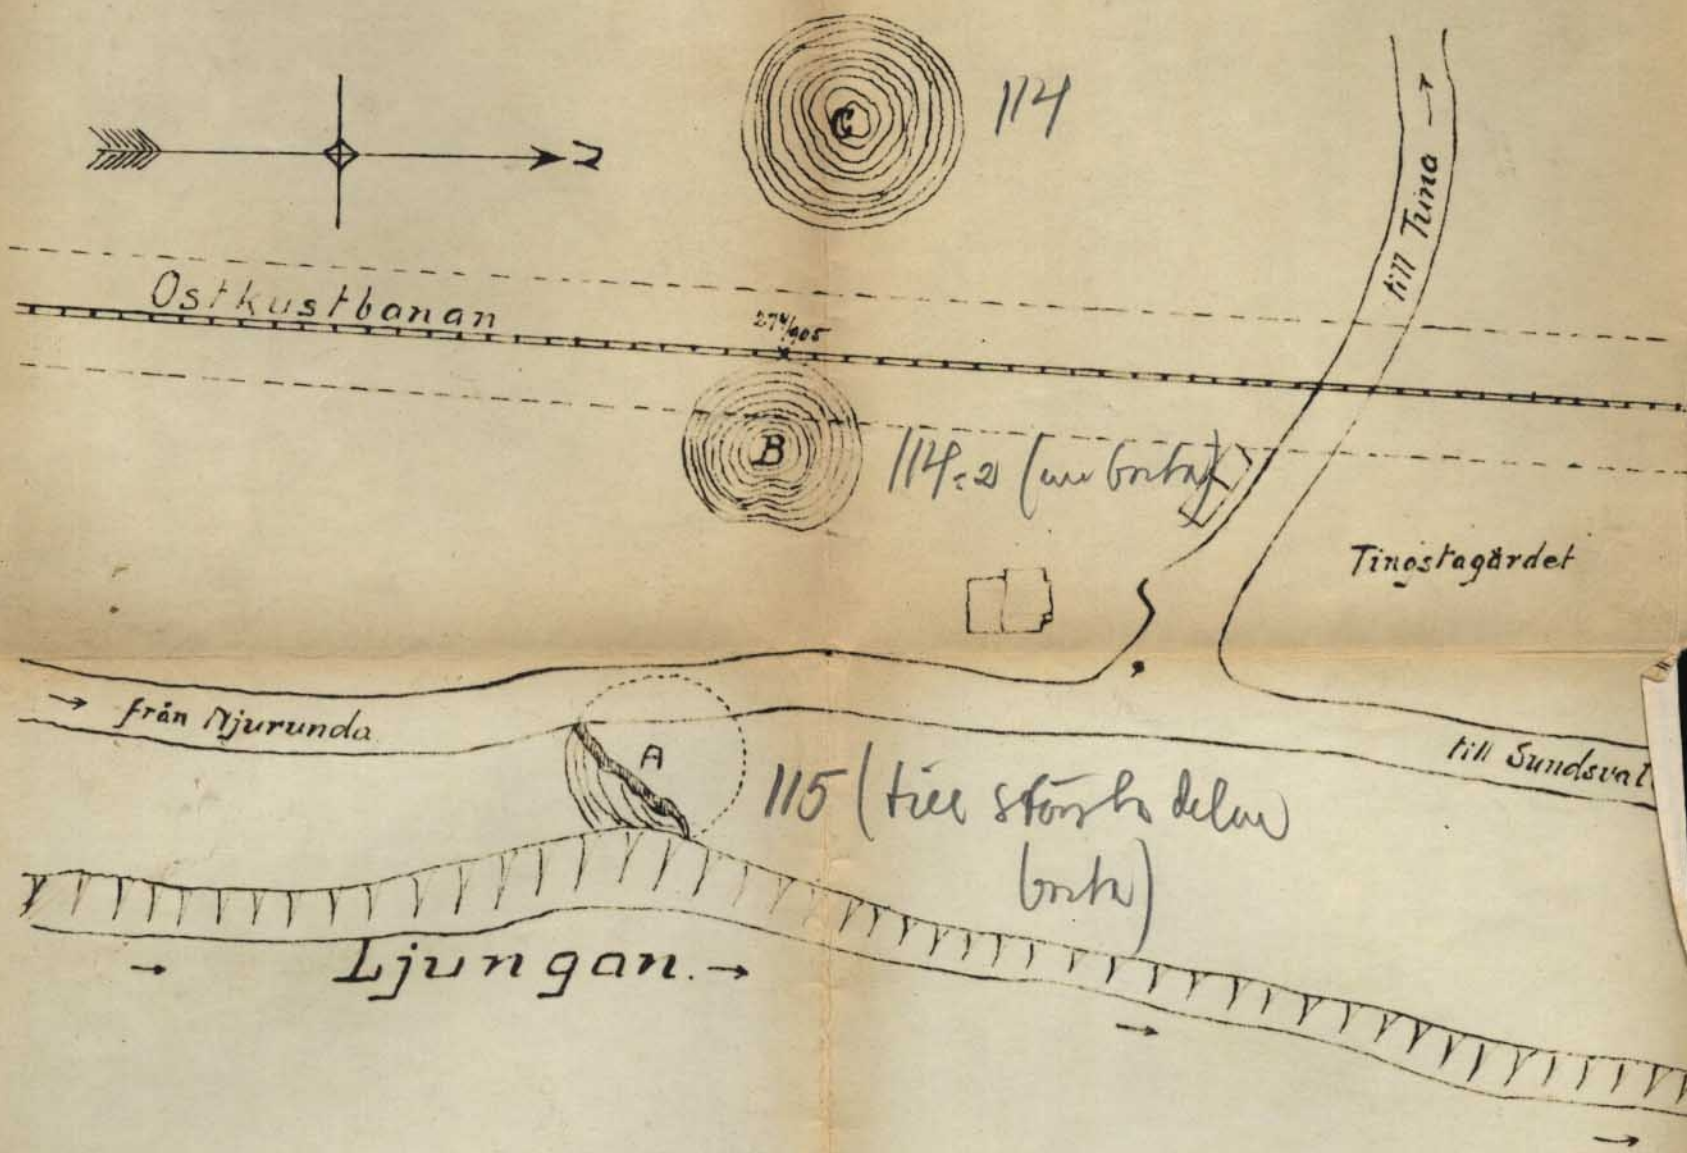 C
114
N
till Tuna →
Ostkustbanan
274/905
B
114:2 (nu borta)
Tingstagärdet
→ från Njurunda
A
115 (till största delen
borta)
till Sundsval
→ Ljungan. →
→
→